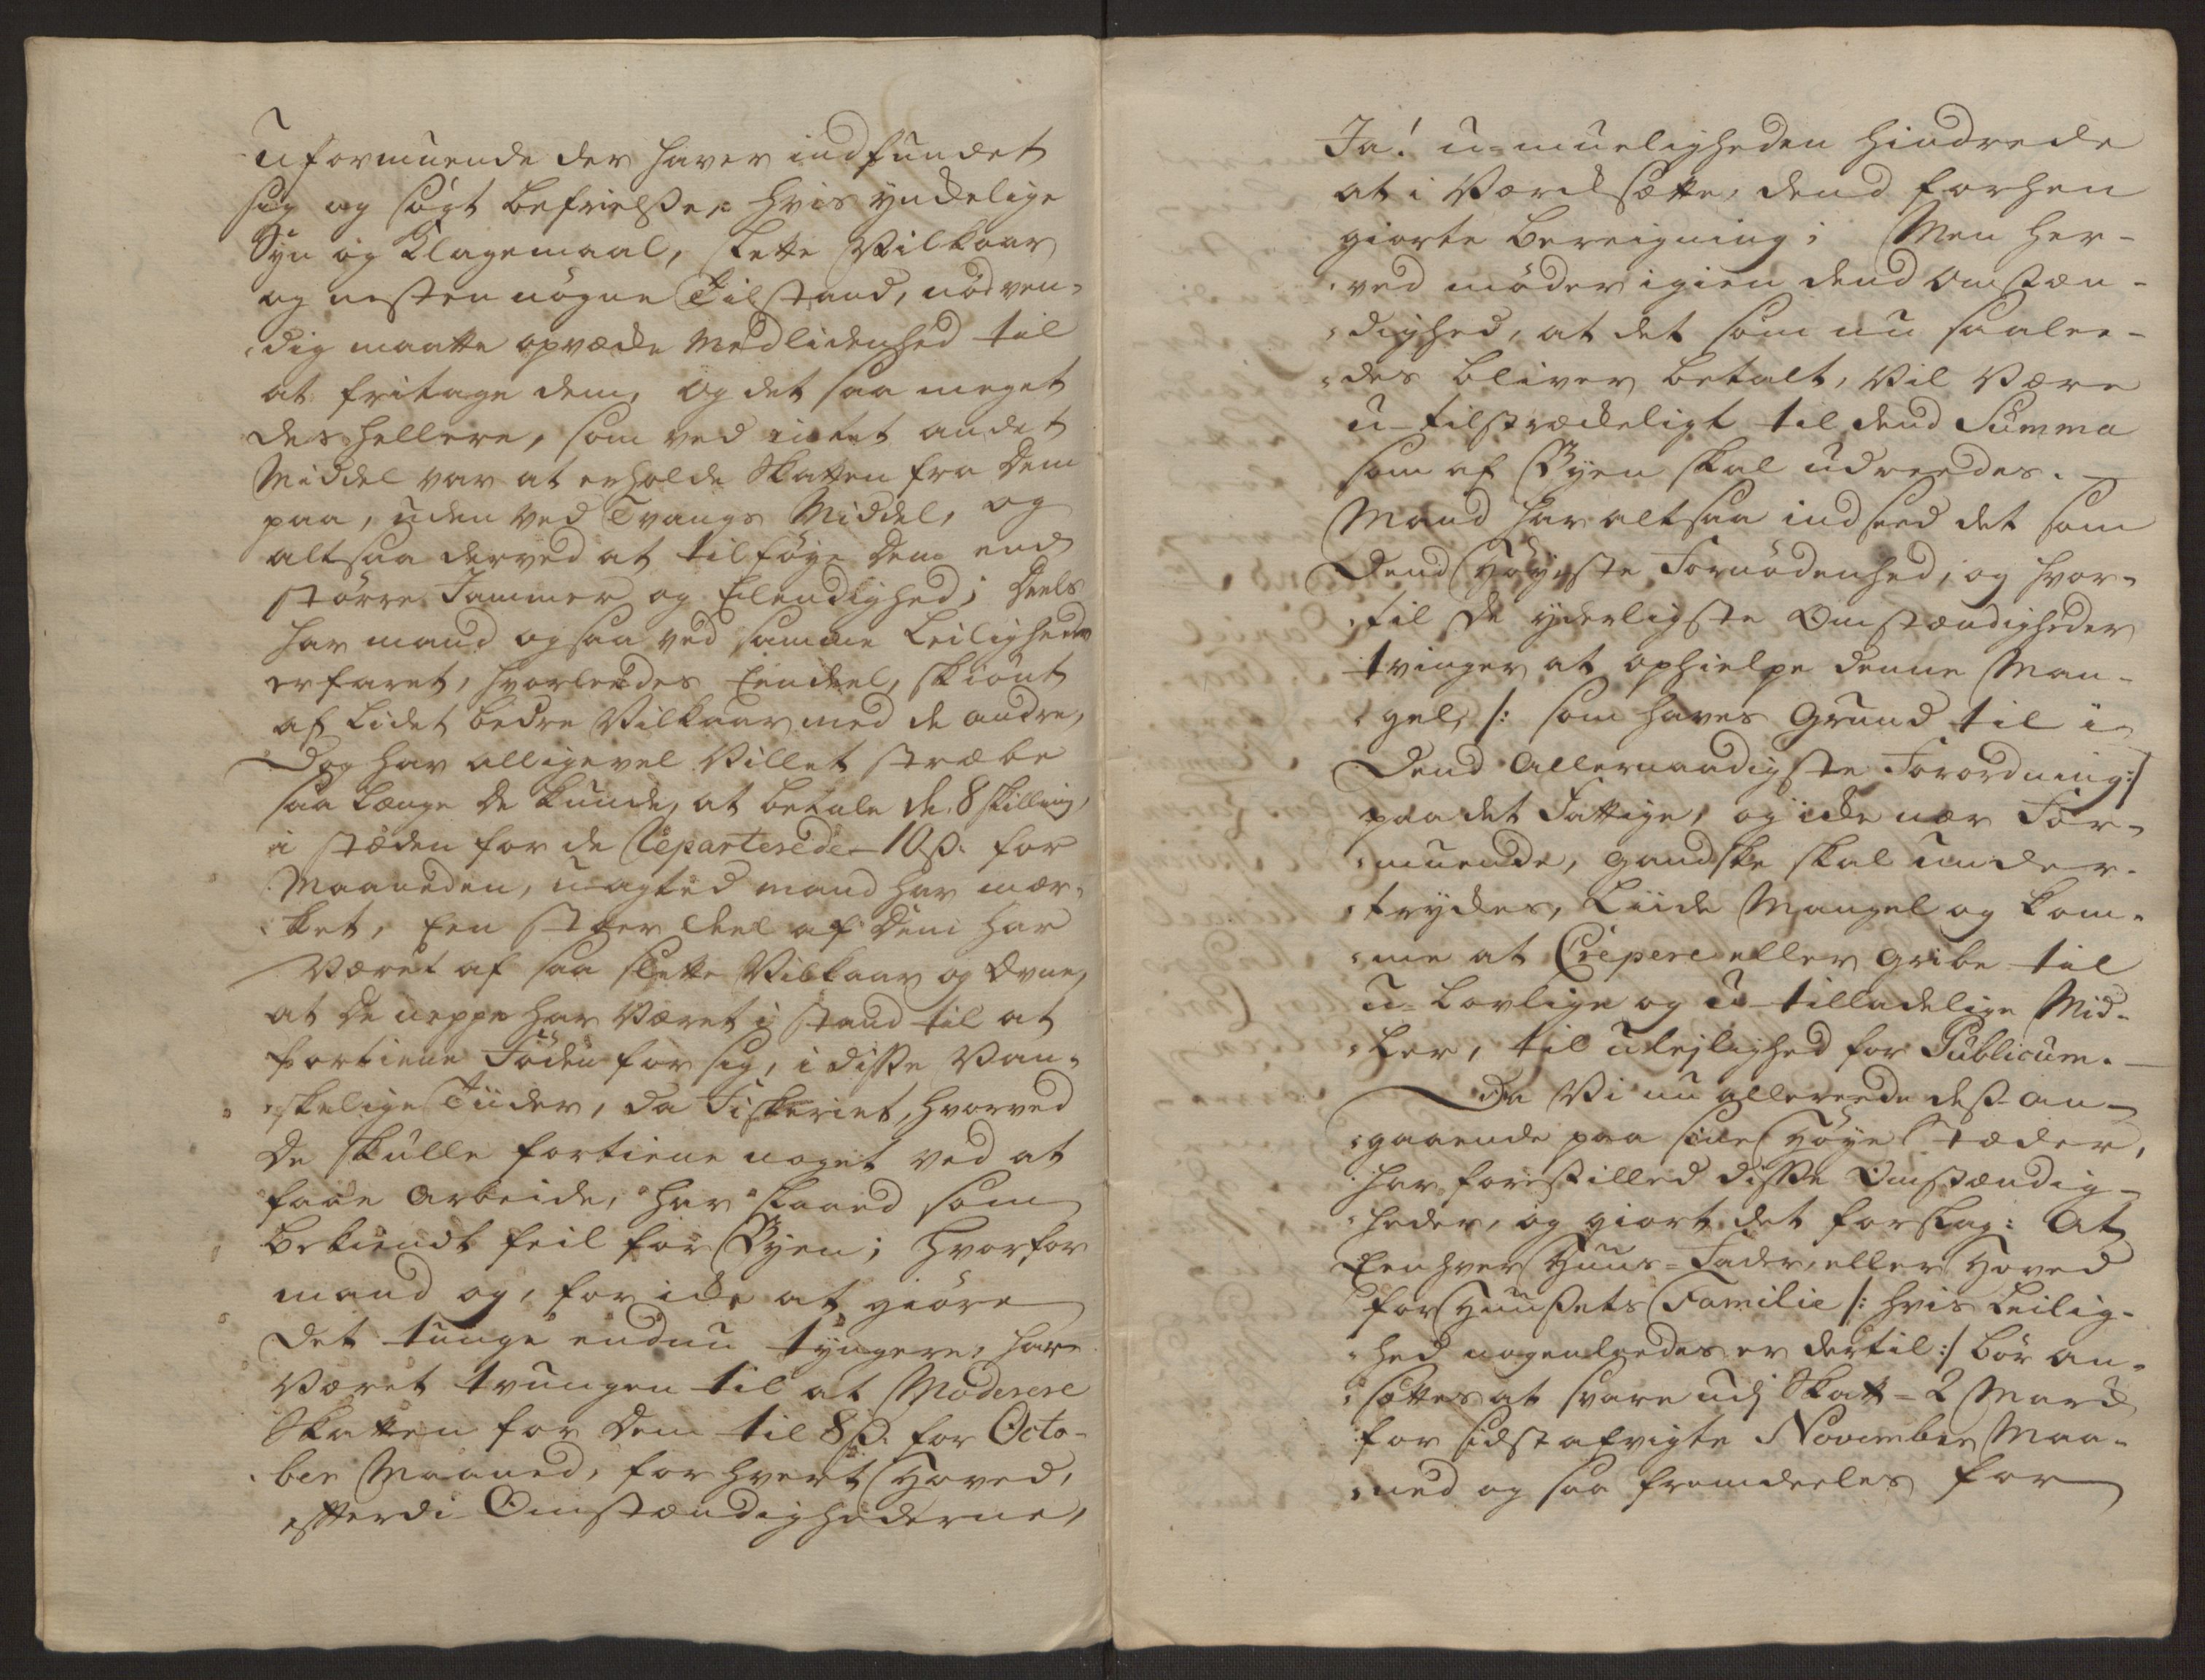 uformuende der haver indfundet
sig og søgt befrielse, hvis ynckelige
Syn og Klagemaal, slette Vilkaar
og nesten nøgne Tilstand, nødven-
dig maatte opvæcke Medlidenhed til
at fritage dem, og det saa meget
des hellere, som ved intet andet
Middel var at erholde Skatten fra Dem
paa, uden ved Tvangs Middel, og
altsaa derved at tilføye Dem end
større Jammer og Elendighed; Deels
har mand ogsaa ved samme Leilighed
erfaret, hvorleedes Eendeel, skiønt
af Lidet bedre Vilkaar med de andre,
Dog har alligevel Villet stræbe
saa Længe De kunde, at betale de 8 skilling,
i stæden for de Reparterede 10 ß. for
Maaneden, uagted mand har mær-
ket, Een stoer Deel af Dem har
Været af saa slette Vilkaar og Evne,
at De neppe har Været i stand til at
fortiene Føden for sig, i disse Van-
skelige Tiider, da Fiskeriet, hvorved
De skulle fortiene noget ved at
faae Arbeide, har slaaed som
bekiendt feil for Byen; hvorfor
mand og, for icke at giøre
Det tunge endnu tyngere, har
Været tvungen til at Moderere
Skatten for Dem til 8 ß. for Octo-
ber Maaned, for hvert Hoved,
efterdi Omstændighederne,
Ja! u-mueligheden hindrede
at i Værcksætte, dend forhen
giorte bereigning; Men her-
ved møder igien dend Omstæn-
dighed, at det som nu saalee-
des bliver betalt, Vil Være
u-tilstræckeligt til dend Summa
som af Byen skal udreedes.
Mand har altsaa indseed det som
Dend Høyeste Fornødenhed, og hvor-
til De yderligste Omstændigheder
tvinger at ophielpe denne Man-
gel, /: som haves Grund til i
Dend Allernaadigste Forordning :/
paa det Fattige, og icke nær For-
muende, gandske skal under-
trydes, Liide Mangel og kom-
me at Crepere eller gribe til
u-Lovlige og u-tilladelige Mid-
ler, til ulejlighed for Publicum.
Da Vi nu allereede des an-
gaaende paa sine Høye Stæder,
har forestilled disse Omstændig-
heder, og giort det forslag: At
Een hver Huus-Fader, eller Hoved
for Huusets Familie /: hvis Leilig-
hed nogenleedes er dertil :/ bør an-
sættes at svare udj Skatt = 2 Marck
for sidst afvigte November Maa-
ned og saa fremdeeles for